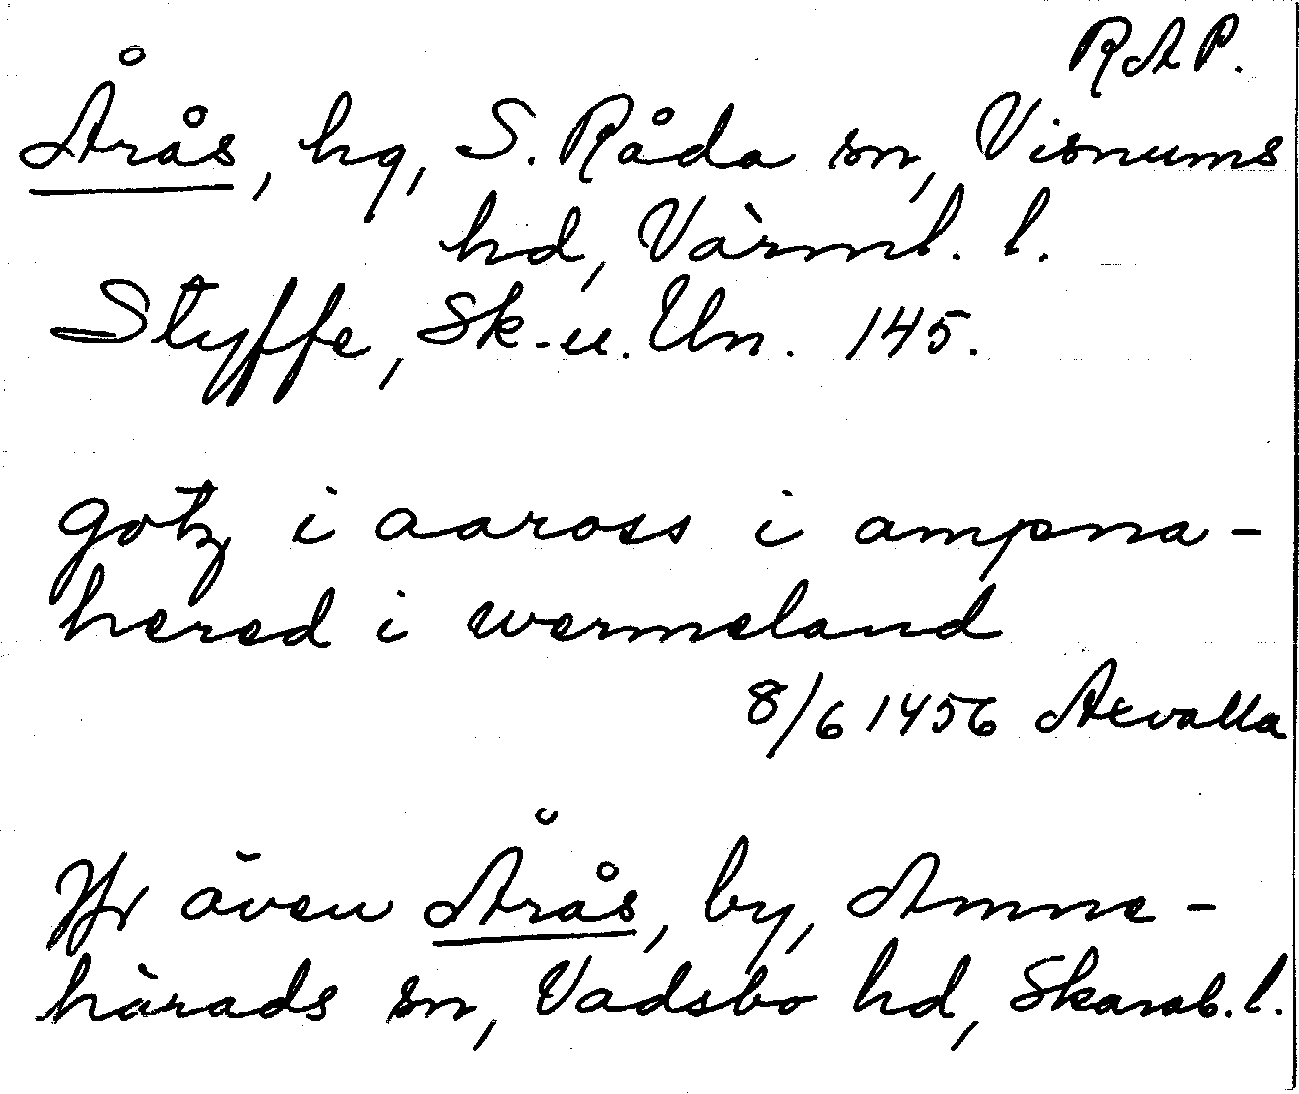 RAP.
Årås, hg, S. Råda sn, Visnums
hd, Värml. l.
Styffe, Sk. u. Un. 145.
gotz i aaross i ampna-
hered i wermeland
8/6 1456 Axvalla
Jfr även Årås, by, Amne-
härads sn, Vadsbo hd, Skarab. l.